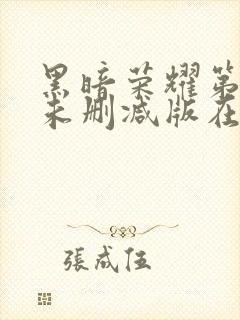 黑暗荣耀第
未删减版在
張成伍